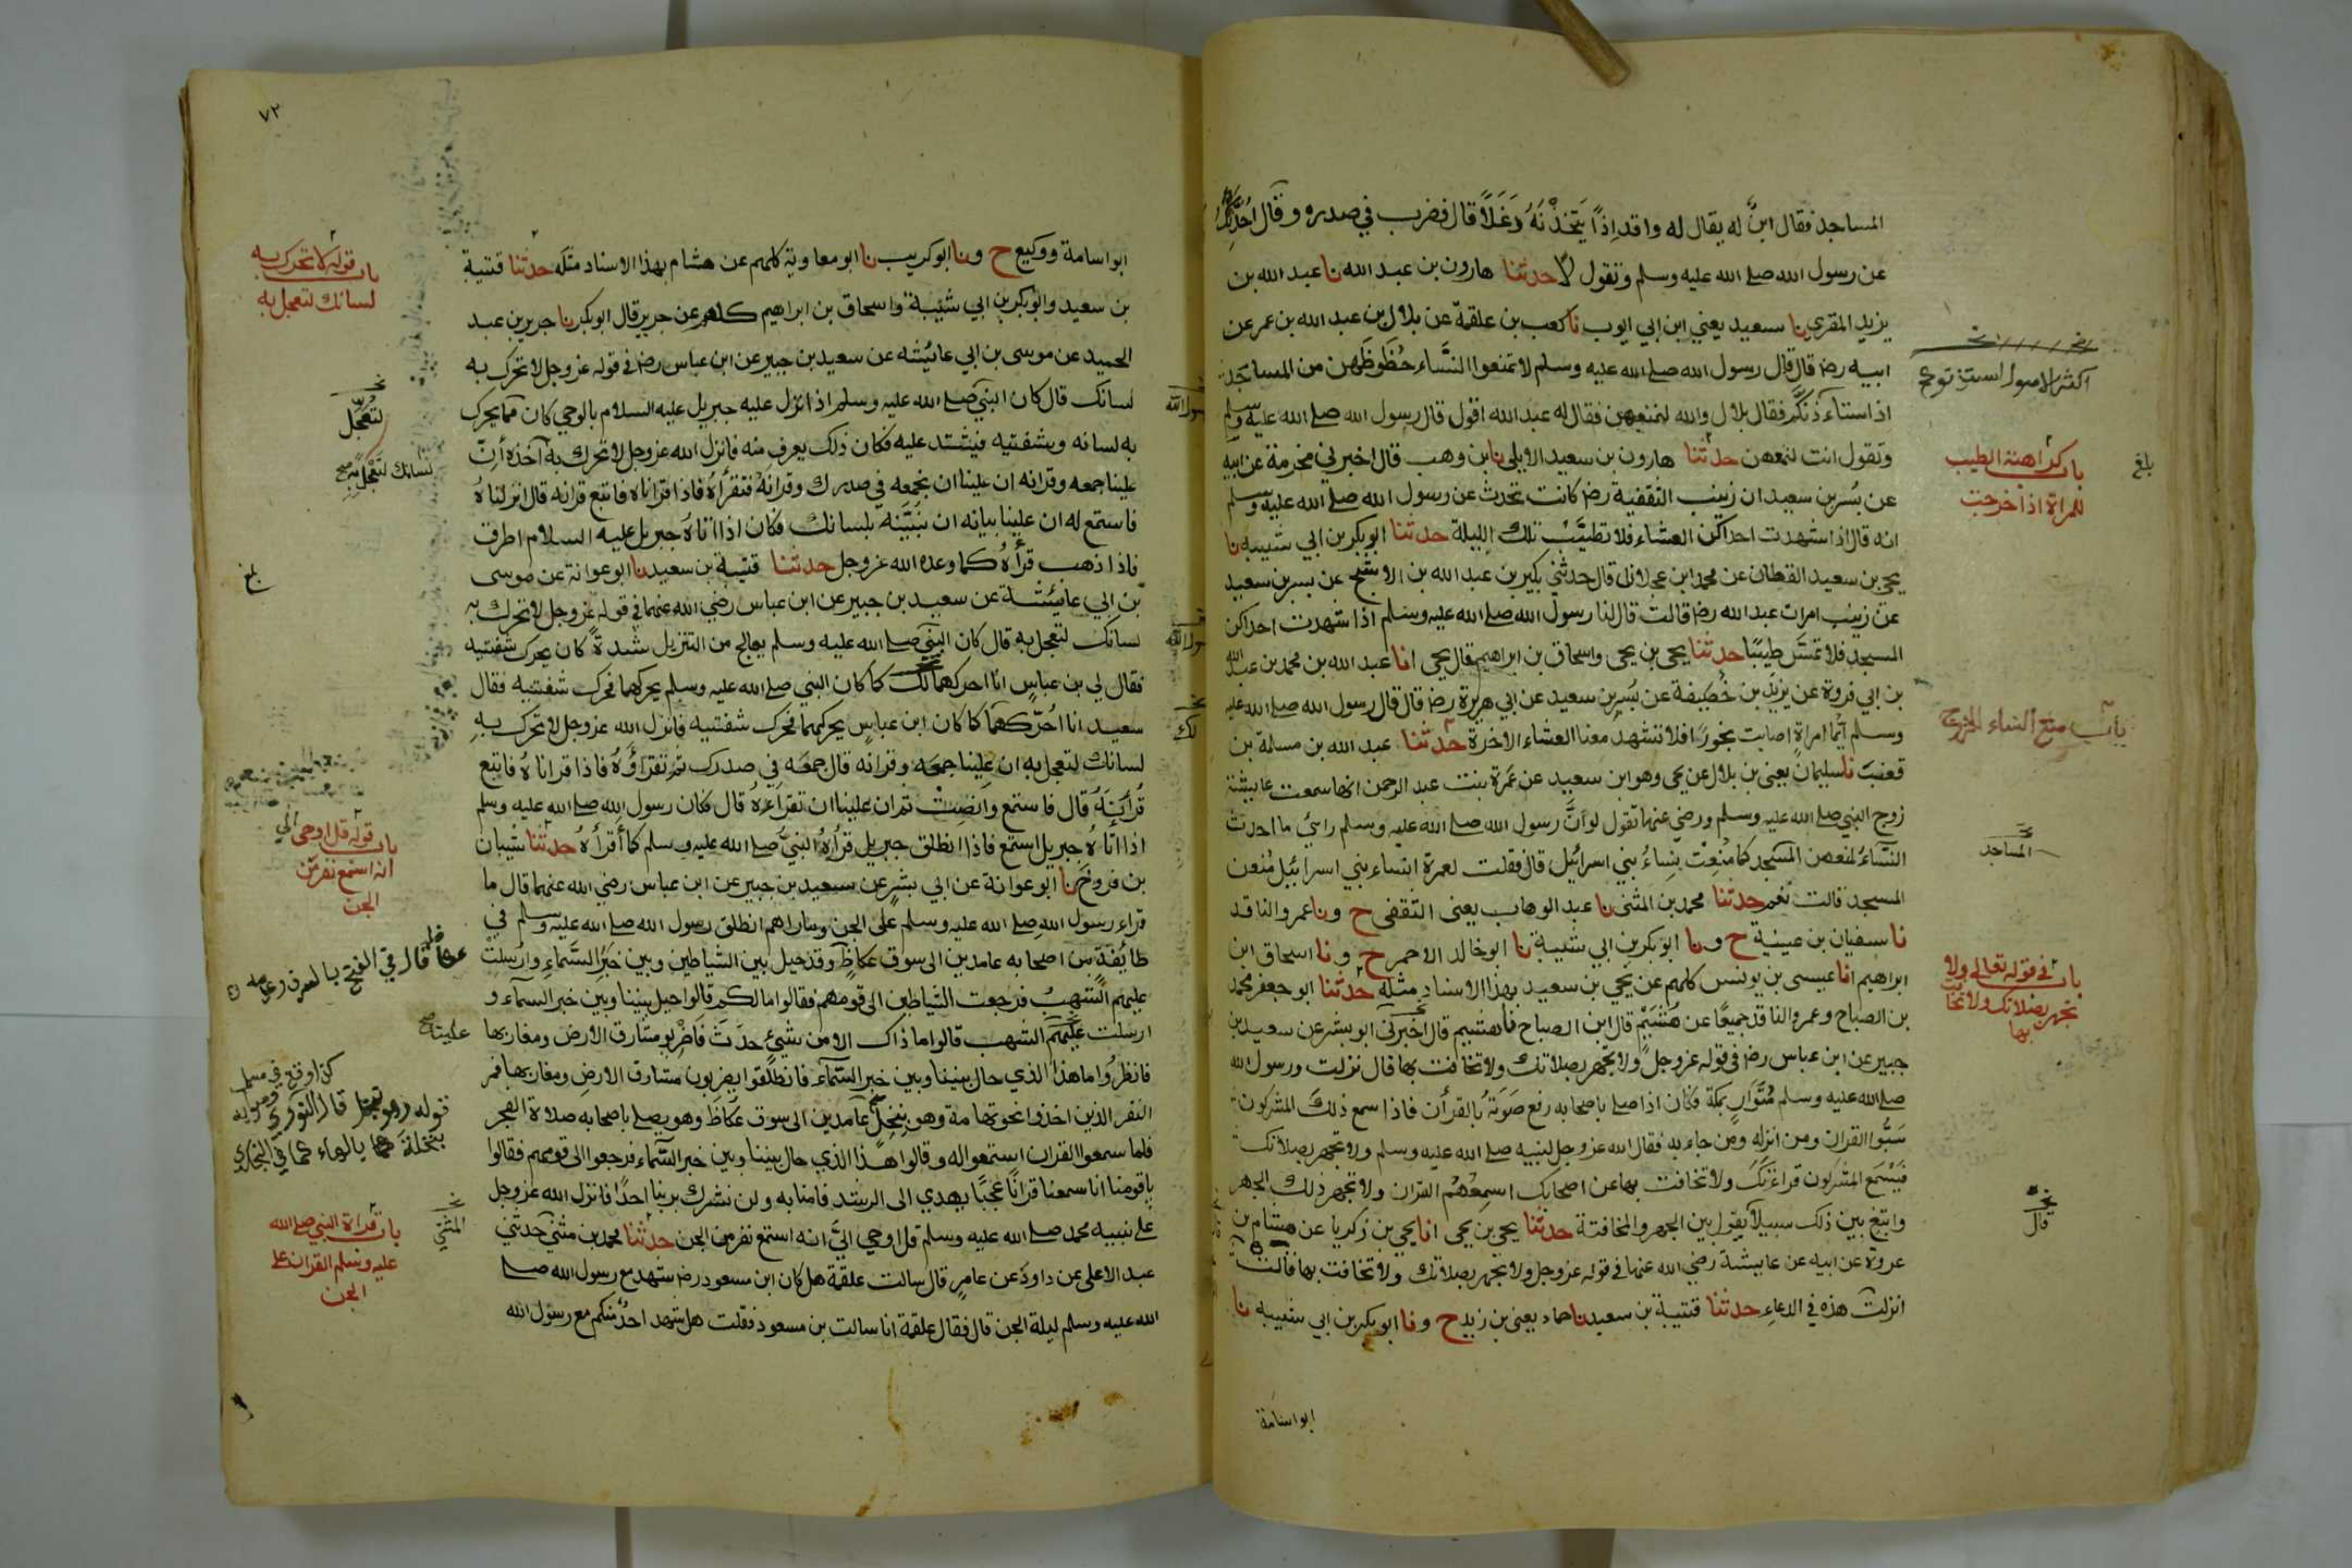 المساجد فقال ابن له يقال له واقد اذا يتخذنه دغلا قال فضرب في صدره وقال احدثك
عن رسول الله صلے الله عليه وسلم وتقول لا حدثنا هارون بن عبد الله نا عبد الله بن
يزيد المقري نا سعيد يعني ابن ابي ايوب نا كعب بن علقمة عن بلال بن عبد الله بن عمر عن
ابيه رضہ قال قال رسول الله صلے الله عليه وسلم لا تمنعوا النساء حظوظهن من المساجد
اذا استاءذنكم فقال بلال والله لنمنعهن فقال له عبد الله اقول قال رسول الله صلے الله عليه وسلم
وتقول انت لنمنعهن حدثنا هارون بن سعيد الايلي نا ابن وهب قال اخبرني مخرمة عن ابيه
عن بسر بن سعيد ان زينب الثقفية رضہ كانت تحدث عن رسول الله صلے الله عليه وسلم
انه قال اذا شهدت احداكن العشاء فلا تطيب تلك الليلة حدثنا ابو بكر بن ابي شيبه نا
يحيى بن سعيد القطان عن محمد ابن عجلان قال حدثني بكير بن عبد الله بن الاشج عن بسر بن سعيد
عن زينب امرات عبد الله رضہ قالت قال لنا رسول الله صلے الله عليه وسلم اذا شهدت احداكن
المسجد فلا تمس طيبا حدثنا يحيى بن يحيى واسحاق بن ابراهيم قال يحيى انا عبد الله بن محمد بن عبد الله
بن ابي فروة عن يزيد بن خصيفة عن بسر بن سعيد عن ابي هريرة رضہ قال قال رسول الله صلے الله عليه
وسلم ايما امراة اصابت بخورا فلا تشهد معنا العشاء الاخرة حدثنا عبد الله بن مسلمة بن
قعنب نا سليمان يعني بن بلال عن يحيى وهو ابن سعيد عن عمرة بنت عبد الرحمن انها سمعت عايشة
زوج النبي صلے الله عليه وسلم ورضي عنها تقول لو ان رسول الله صلے الله عليه وسلم راى ما احدث
النساء لمنعهن المسجد كما منعت نساء بني اسرائيل قال فقلت لعمرة انساء بني اسرائيل منعن
المسجد قالت نعم حدثنا محمد بن المثنى نا عبد الوهاب يعنى الثقفى ح ونا عمرو الناقد
نا سفيان بن عيينة ح ونا ابو بكر بن ابي شيبة نا ابو خالد الاحمر ح ونا اسحاق ابن
ابراهيم انا عيسى بن يونس كلهم عن يحيى بن سعيد بهذا الاسناد مثله حدثنا ابو جعفر محمد
بن الصباح وعمرو الناقد جميعا عن هشيم قال ابن الصباح نا هشيم قال اخبرنى ابو بشر عن سعيد بن
جبير عن ابن عباس رضہ في قوله عز وجل ولا تجهر بصلاتك ولا تخافت بها قال نزلت ورسول الله
صلے الله عليه وسلم متوار بمكة فكان اذا صلے باصحابه رفع صوته بالقرأن فاذا سمع ذلك المشركون
سبوا القران ومن انزله ومن جاء به فقال الله عز وجل لنبيه صلے الله عليه وسلم ولا تجهر بصلاتك
فيسمع المشركون قراءتك ولا تخافت بها عن اصحابك اسمعهم القران ولا تجهر ذلك الجهر
وابتغ بين ذلك سبيلا يقول بين الجهر والمخافتة حدثنا يحيى بن يحيى انا يحيى بن زكريا عن هشام بن
عروة عن ابيه عن عايشة رضي الله عنها في قوله عز وجل ولا تجهر بصلاتك ولا تخافت بها قالت
انزلت هذه في الدعاء حدثنا قتيبة بن سعيد نا حماد يعني بن زيد ح ونا ابو بكر بن ابي شيبه نا
ابو اسامة
باب كراهية الطيب
للمراة اذا خرجت
بلغ
باب منع النساء الخروج
المساجد
باب في قوله تعالى ولا
تجهر بصلاتك ولا تخافت
بها
قال
٧٢
ابو اسامة ووكيع ح ونا ابو كريب نا ابو معاوية كلهم عن هشام بهذا الاسناد مثله حدثنا قتيبة
بن سعيد وابو بكر بن ابي شيبة واسحاق بن ابراهيم كلهم عن جرير قال ابو بكر نا جرير بن عبد
الحميد عن موسى بن ابي عائشه عن سعيد بن جبير عن ابن عباس رضہ في قوله عز وجل لا تحرك به
لسانك قال كان النبي صلے الله عليه وسلم اذا نزل عليه جبريل عليه السلام بالوحي كان مما يحرك
به لسانه وشفتيه فيشتد عليه فكان ذلك يعرف منه فانزل الله عز وجل لا تحرك به آخذه أن
علينا جمعه وقرانه ان علينا ان نجمعه في صدرك وقرانه فتقرأه فاذا قراناه فاتبع قرانه قال انزلناه
فاستمع له ان علينا بيانه ان نبينه بلسانك فكان اذا اتاه جبريل عليه السلام اطرق
فاذا ذهب قرأه كما وعده الله عز وجل حدثنا قتيبة بن سعيد نا ابو عوانة عن موسى
بن ابي عائشة عن سعيد بن جبير عن ابن عباس رضي الله عنهما في قوله عز وجل لا تحرك به
لسانك لتعجل به قال كان النبي صلے الله عليه وسلم يعالج من التنزيل شدة كان يحرك شفتيه
فقال لي بن عباس انا احركهما لك كما كان النبي صلے الله عليه وسلم يحركهما فحرك شفتيه فقال
سعيد انا احركهما كما كان ابن عباس يحركهما فحرك شفتيه فانزل الله عز وجل لا تحرك به
لسانك لتعجل به ان علينا جمعه وقرانه قال جمعه في صدرك ثم تقراؤه فاذا قراناه فاتبع
قرأنه قال فاستمع وانصت ثم ان علينا ان تقراءه قال فكان رسول الله صلے الله عليه وسلم
اذا اتاه جبريل استمع فاذا انطلق جبريل قرأه النبي صلے الله عليه وسلم كما أقرأه حدثنا شيبان
بن فروخ نا ابو عوانة عن ابي بشر عن سعيد بن جبير عن ابن عباس رضي الله عنهما قال ما
قراء رسول الله صلے الله عليه وسلم على الجن وما راهم انطلق رسول الله صلے الله عليه وسلم في
طائفة من اصحابه عامدين الى سوق عكاظ وقد حيل بين الشياطين وبين خبر السماء وأرسلت
عليهم الشهب فرجعت الشياطين الى قومهم فقالوا مالكم قالوا حيل بيننا وبين خبر السماء و
ارسلت عليهم الشهب قالوا ما ذاك الا من شيء حدث فاضربوا مشارق الارض ومغاربها
فانظروا ما هذا الذي حال بيننا وبين خبر السماء فانطلقوا يضربون مشارق الارض ومغاربها فمر
النفر الذين اخذوا نحو تهامة وهو بنخل عامدين الى سوق عكاظ وهو يصلي باصحابه صلاة الفجر
فلما سمعوا القران استمعوا له وقالوا هذا الذي حال بيننا وبين خبر السماء فرجعوا الى قومهم فقالوا
ياقومنا انا سمعنا قرانا عجبا يهدي الى الرشد فامنا به ولن نشرك بربنا احدا فانزل الله عز وجل
على نبيه محمد صلے الله عليه وسلم قل اوحي الي انه استمع نفر من الجن حدثنا محمد بن مثنى حدثني
عبد الاعلى عن داود عن عامر قال سالت علقمة هل كان ابن مسعود رضہ شهد مع رسول الله صلے
الله عليه وسلم ليلة الجن قال فقال علقمة انا سالت بن مسعود فقلت هل شهد احد منكم مع رسول الله
باب قوله لا تحرك به
لسانك لتعجل به
لتعجل
لسانك لتعجل به
بلغ
باب قوله قل اوحي الي
انه استمع نفر من
الجن
علينا
المثنى
باب قراة النبي صلے الله
عليه وسلم القران على
الجن